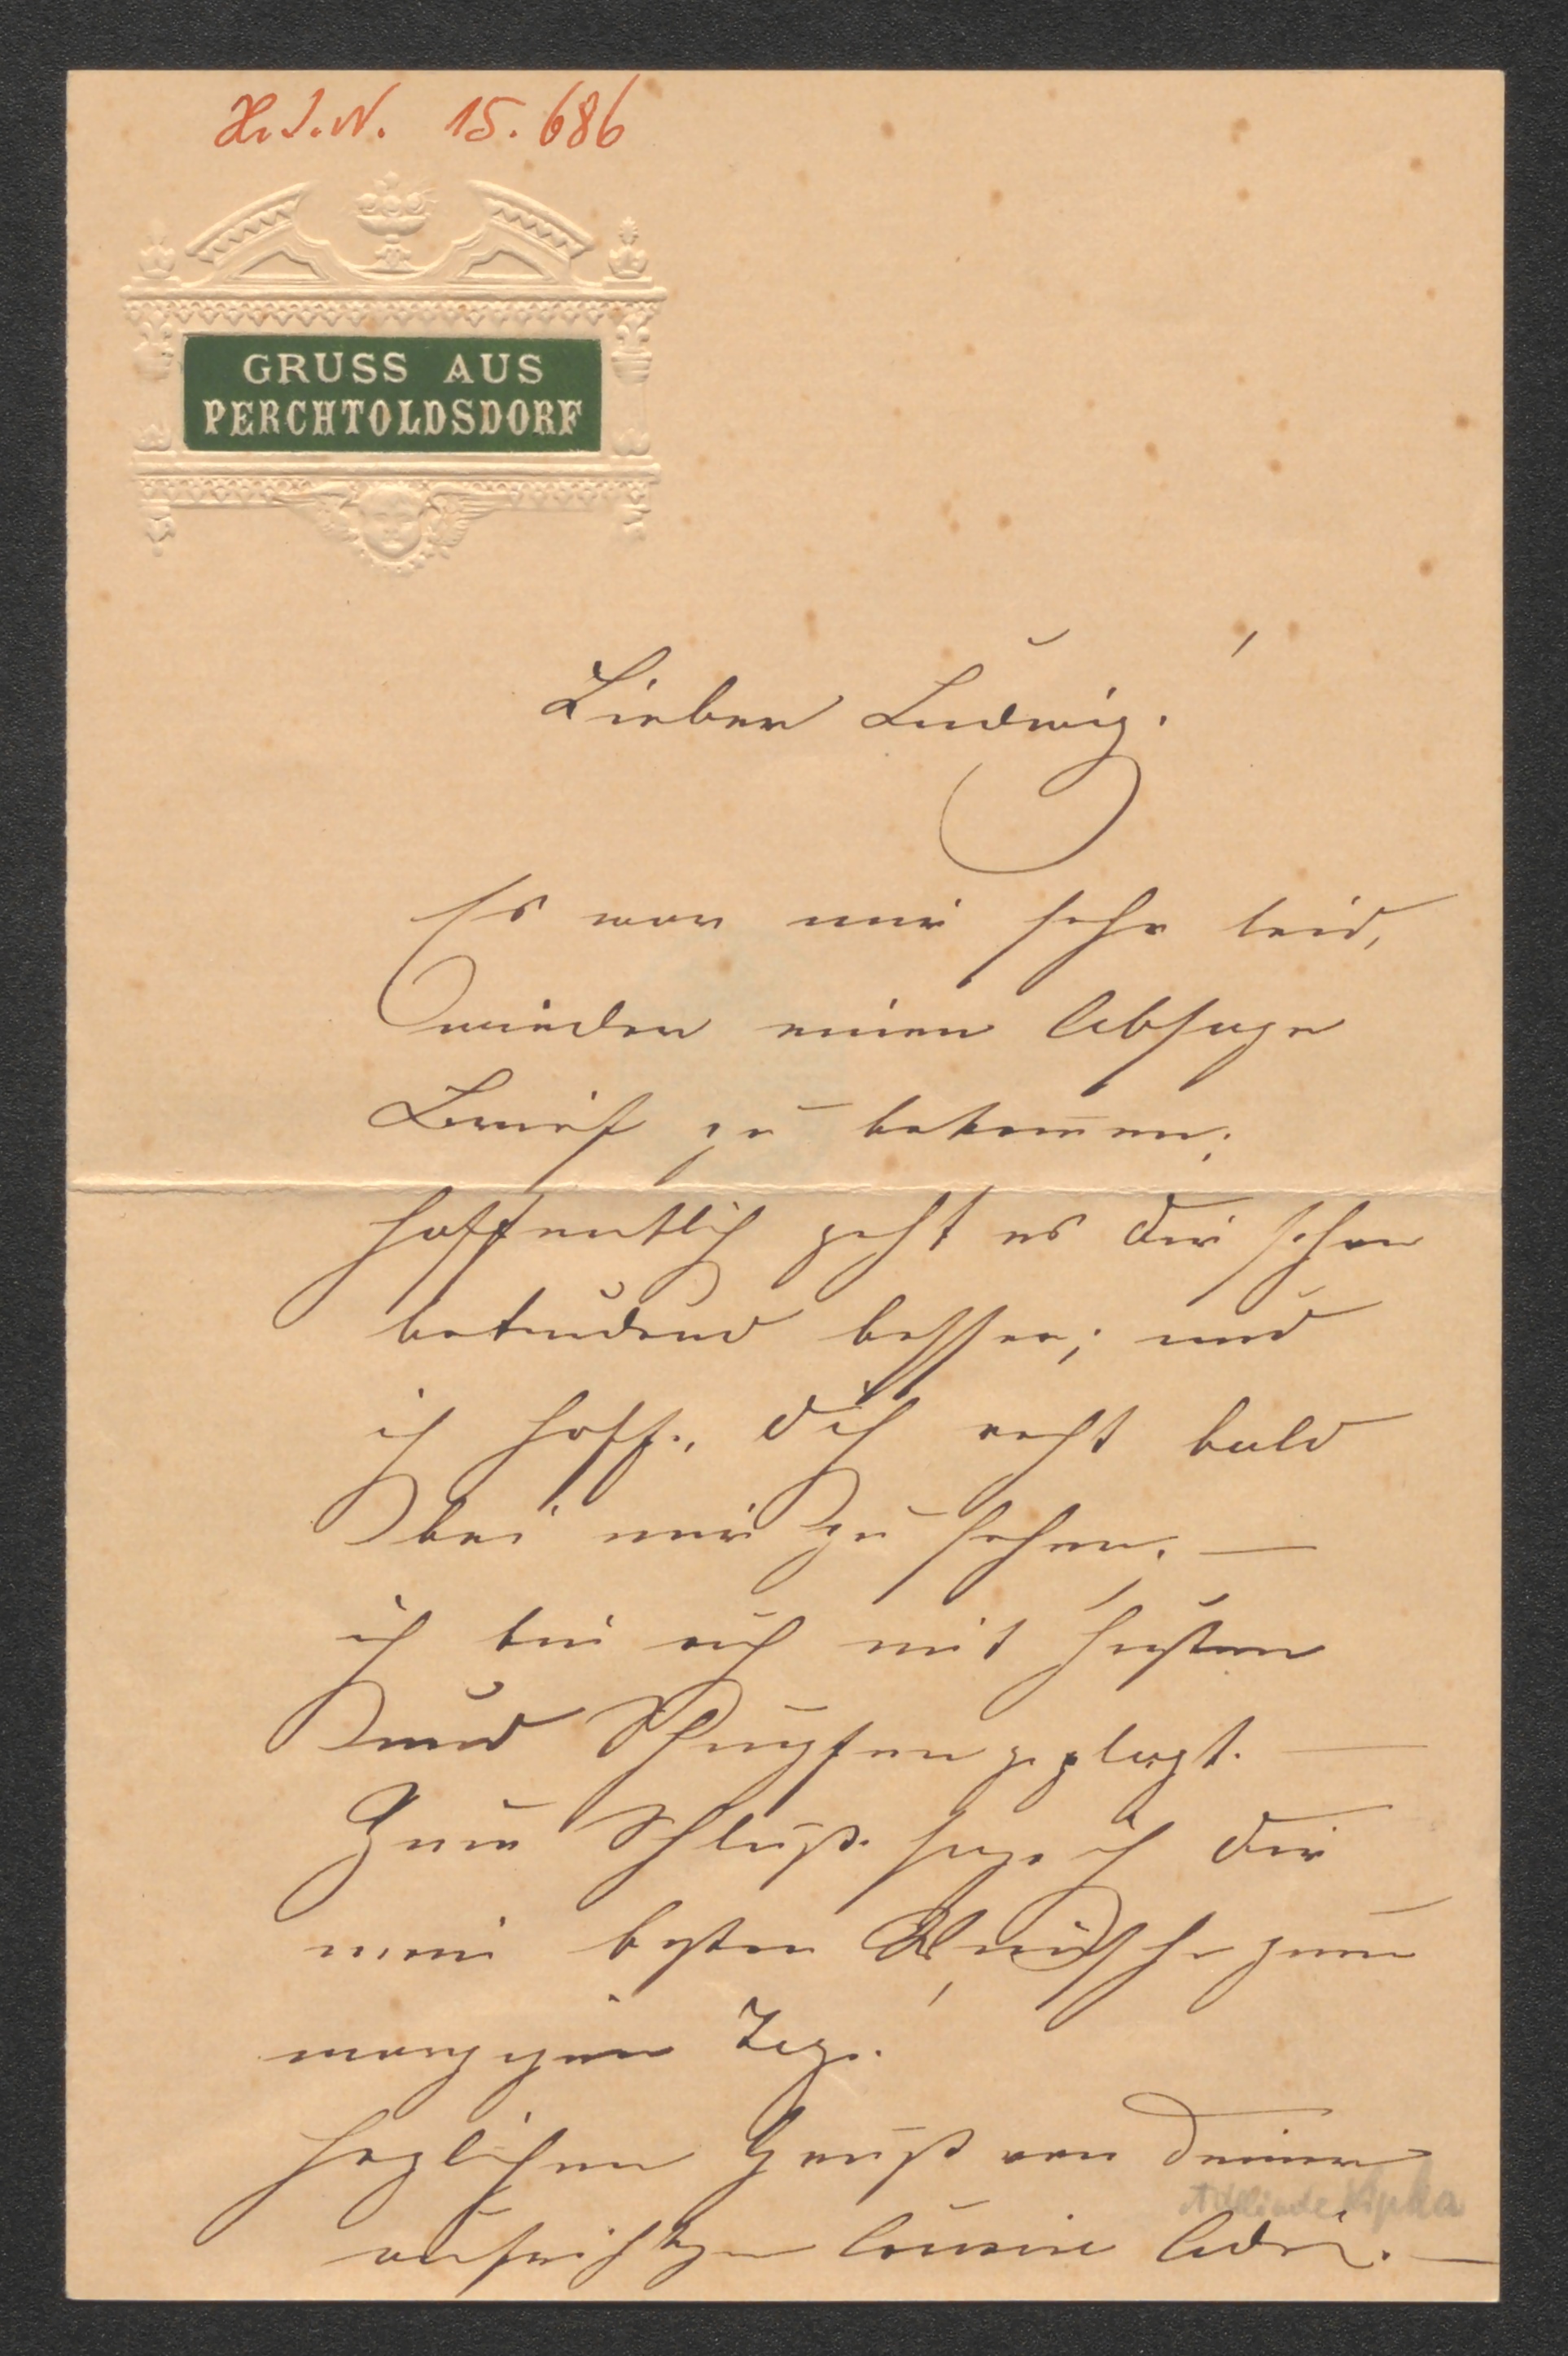 H.I.N. 15.686
GRUSS AUS
PERCHTOLDSDORF
Lieber Ludwig!
Es war mir sehr leid,
wieder einen Absage
Brief zu bekommen;
hoffentlich geht es dir schon
bedeudend besser; und
ich hoffe, dich recht bald
bei mir zu sehen. —
ich bin auch mit Husten
und Schnupfen geplagt. —
Zum Schluße sage ich dir
mein besten Wünsche zum
morgigen Tage!
Herzlichen Gruß von deiner
Adelinde Lipka
aufrichtigen Cousine Adi. —